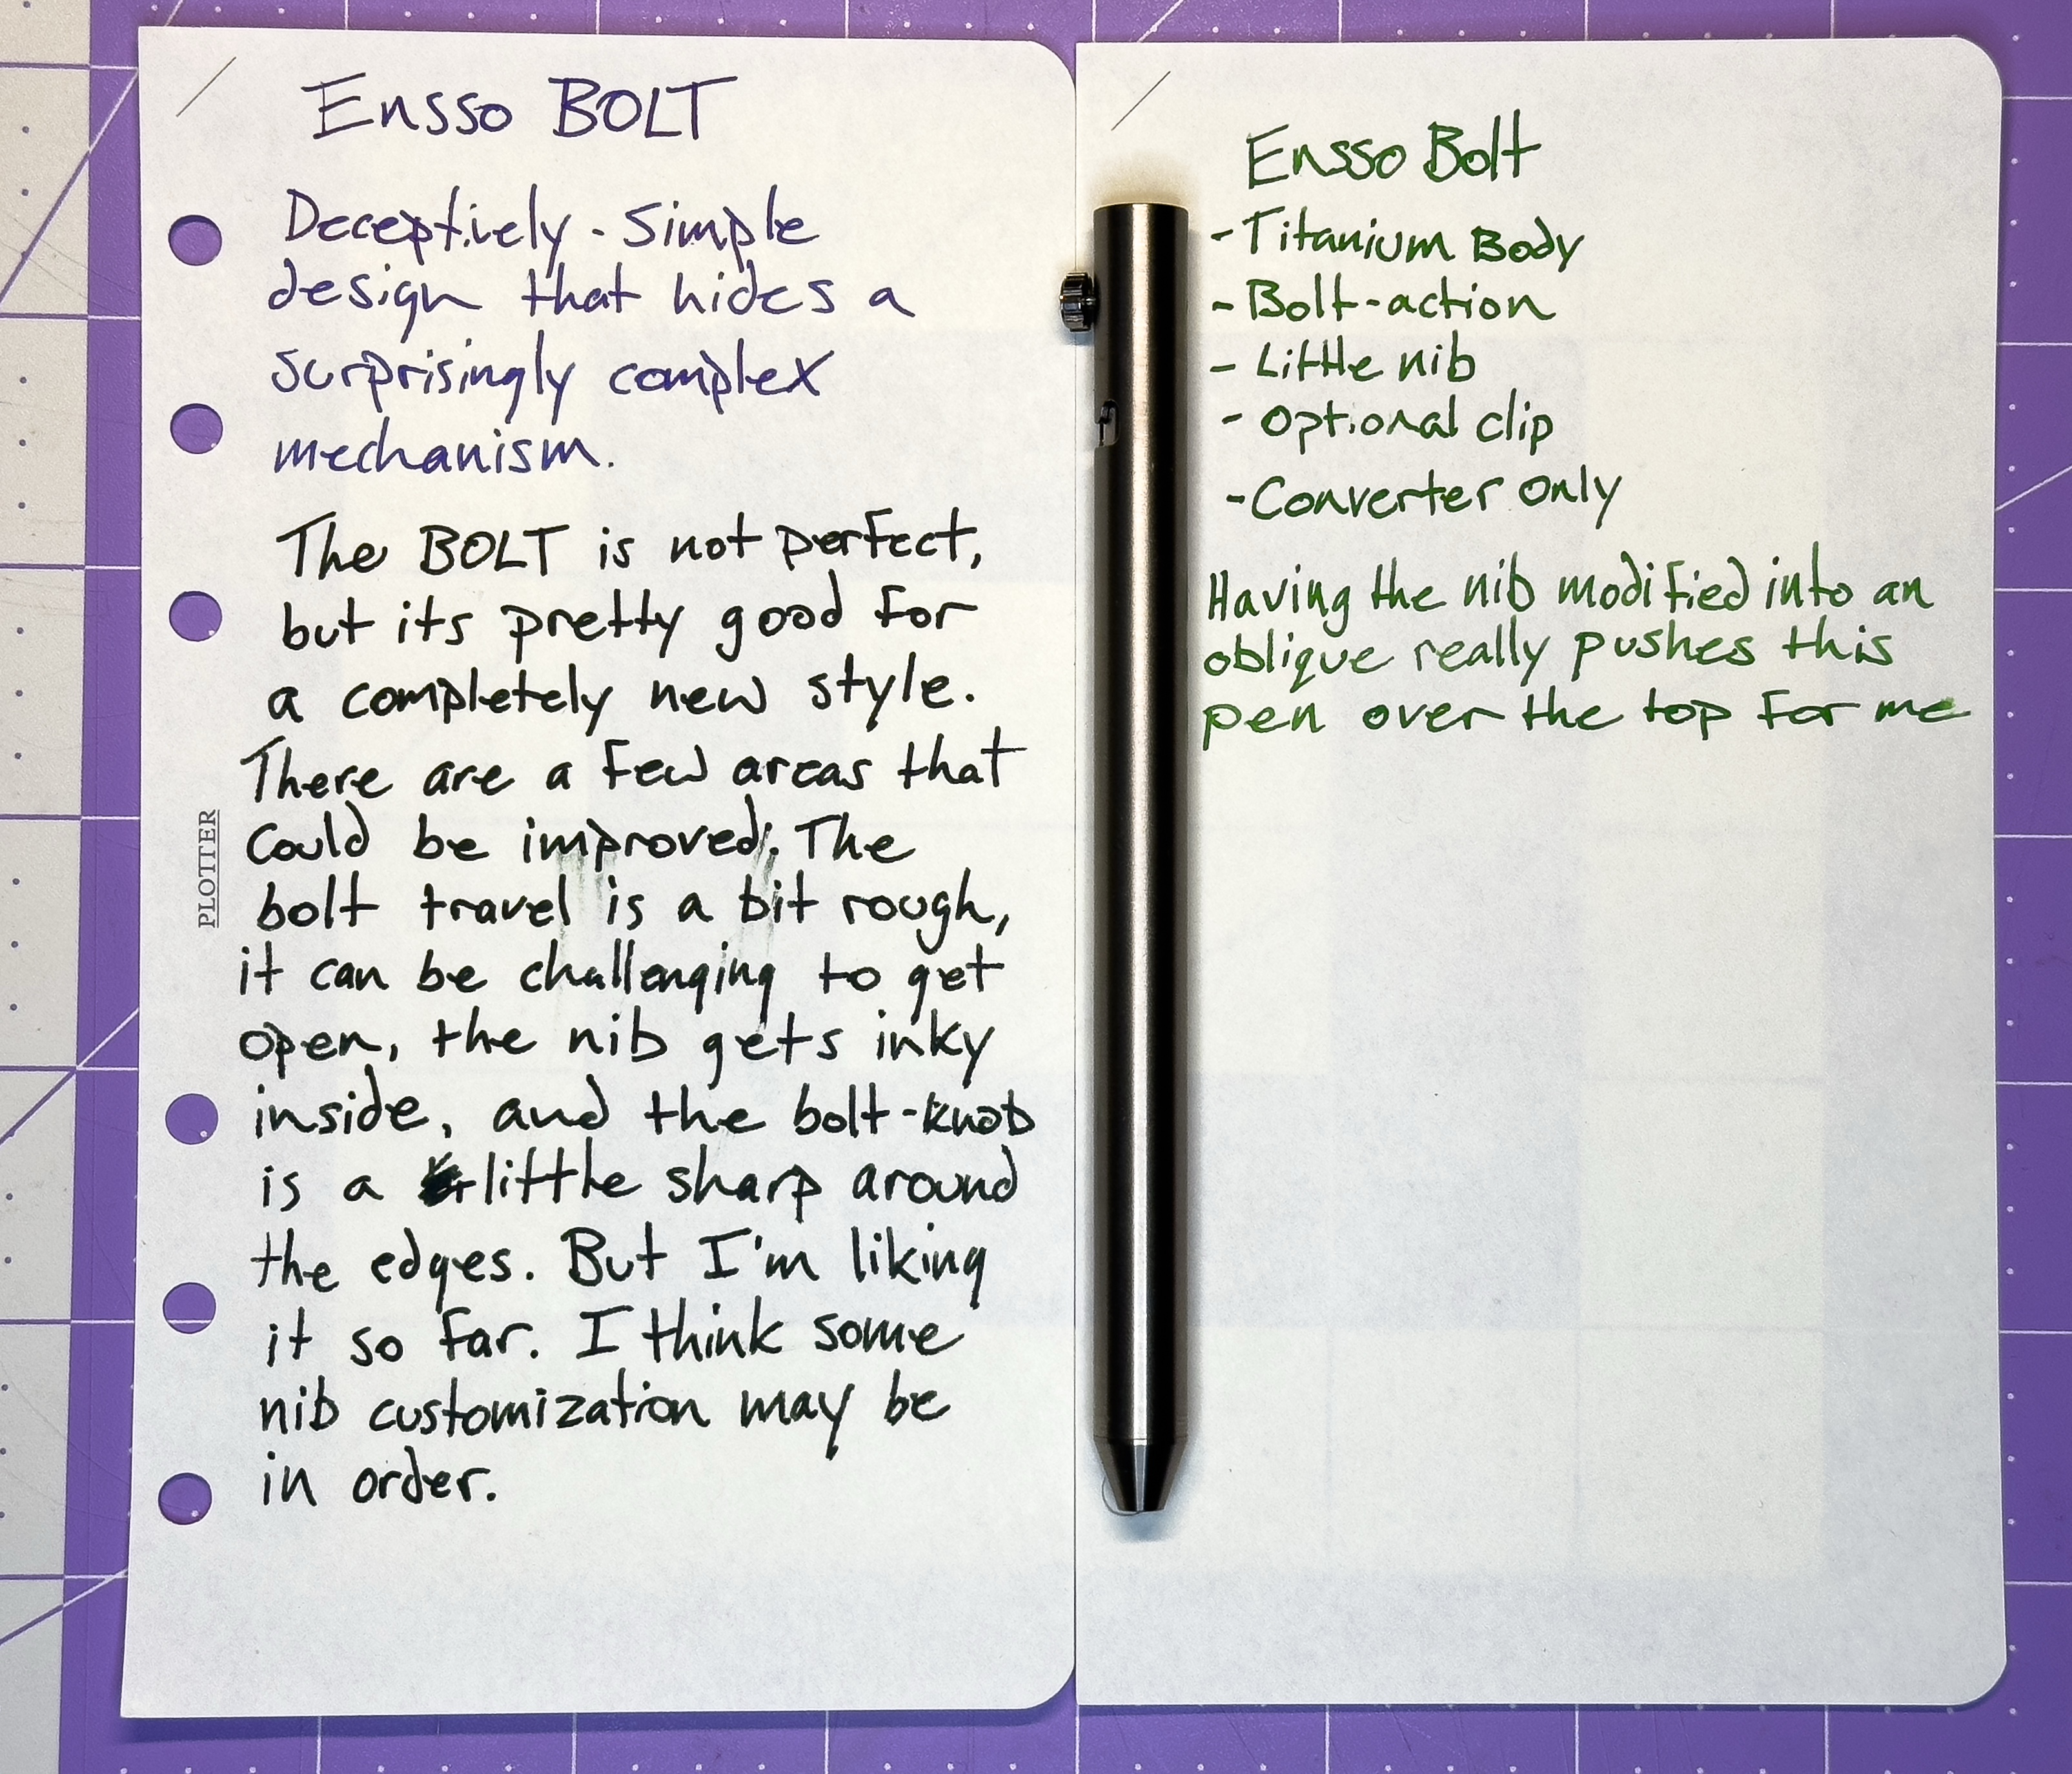 Ensso BOLT
Deceptively-Simple
design that hides a
surprisingly complex
mechanism.
The BOLT is not perfect,
but its pretty good for
a completely new style.
There are a few areas that
could be improved. The
bolt travel is a bit rough,
it can be challenging to get
open, the nib gets inky
inside, and the bolt-knob
is a little sharp around
the edges. But I'm liking
it so far. I think some
nib customization may be
in order.
PLOTTER
Ensso Bolt
- Titanium Body
- Bolt-action
- Little nib
- Optional clip
- Converter only
Having the nib modified into an
oblique really pushes this
pen over the top for me